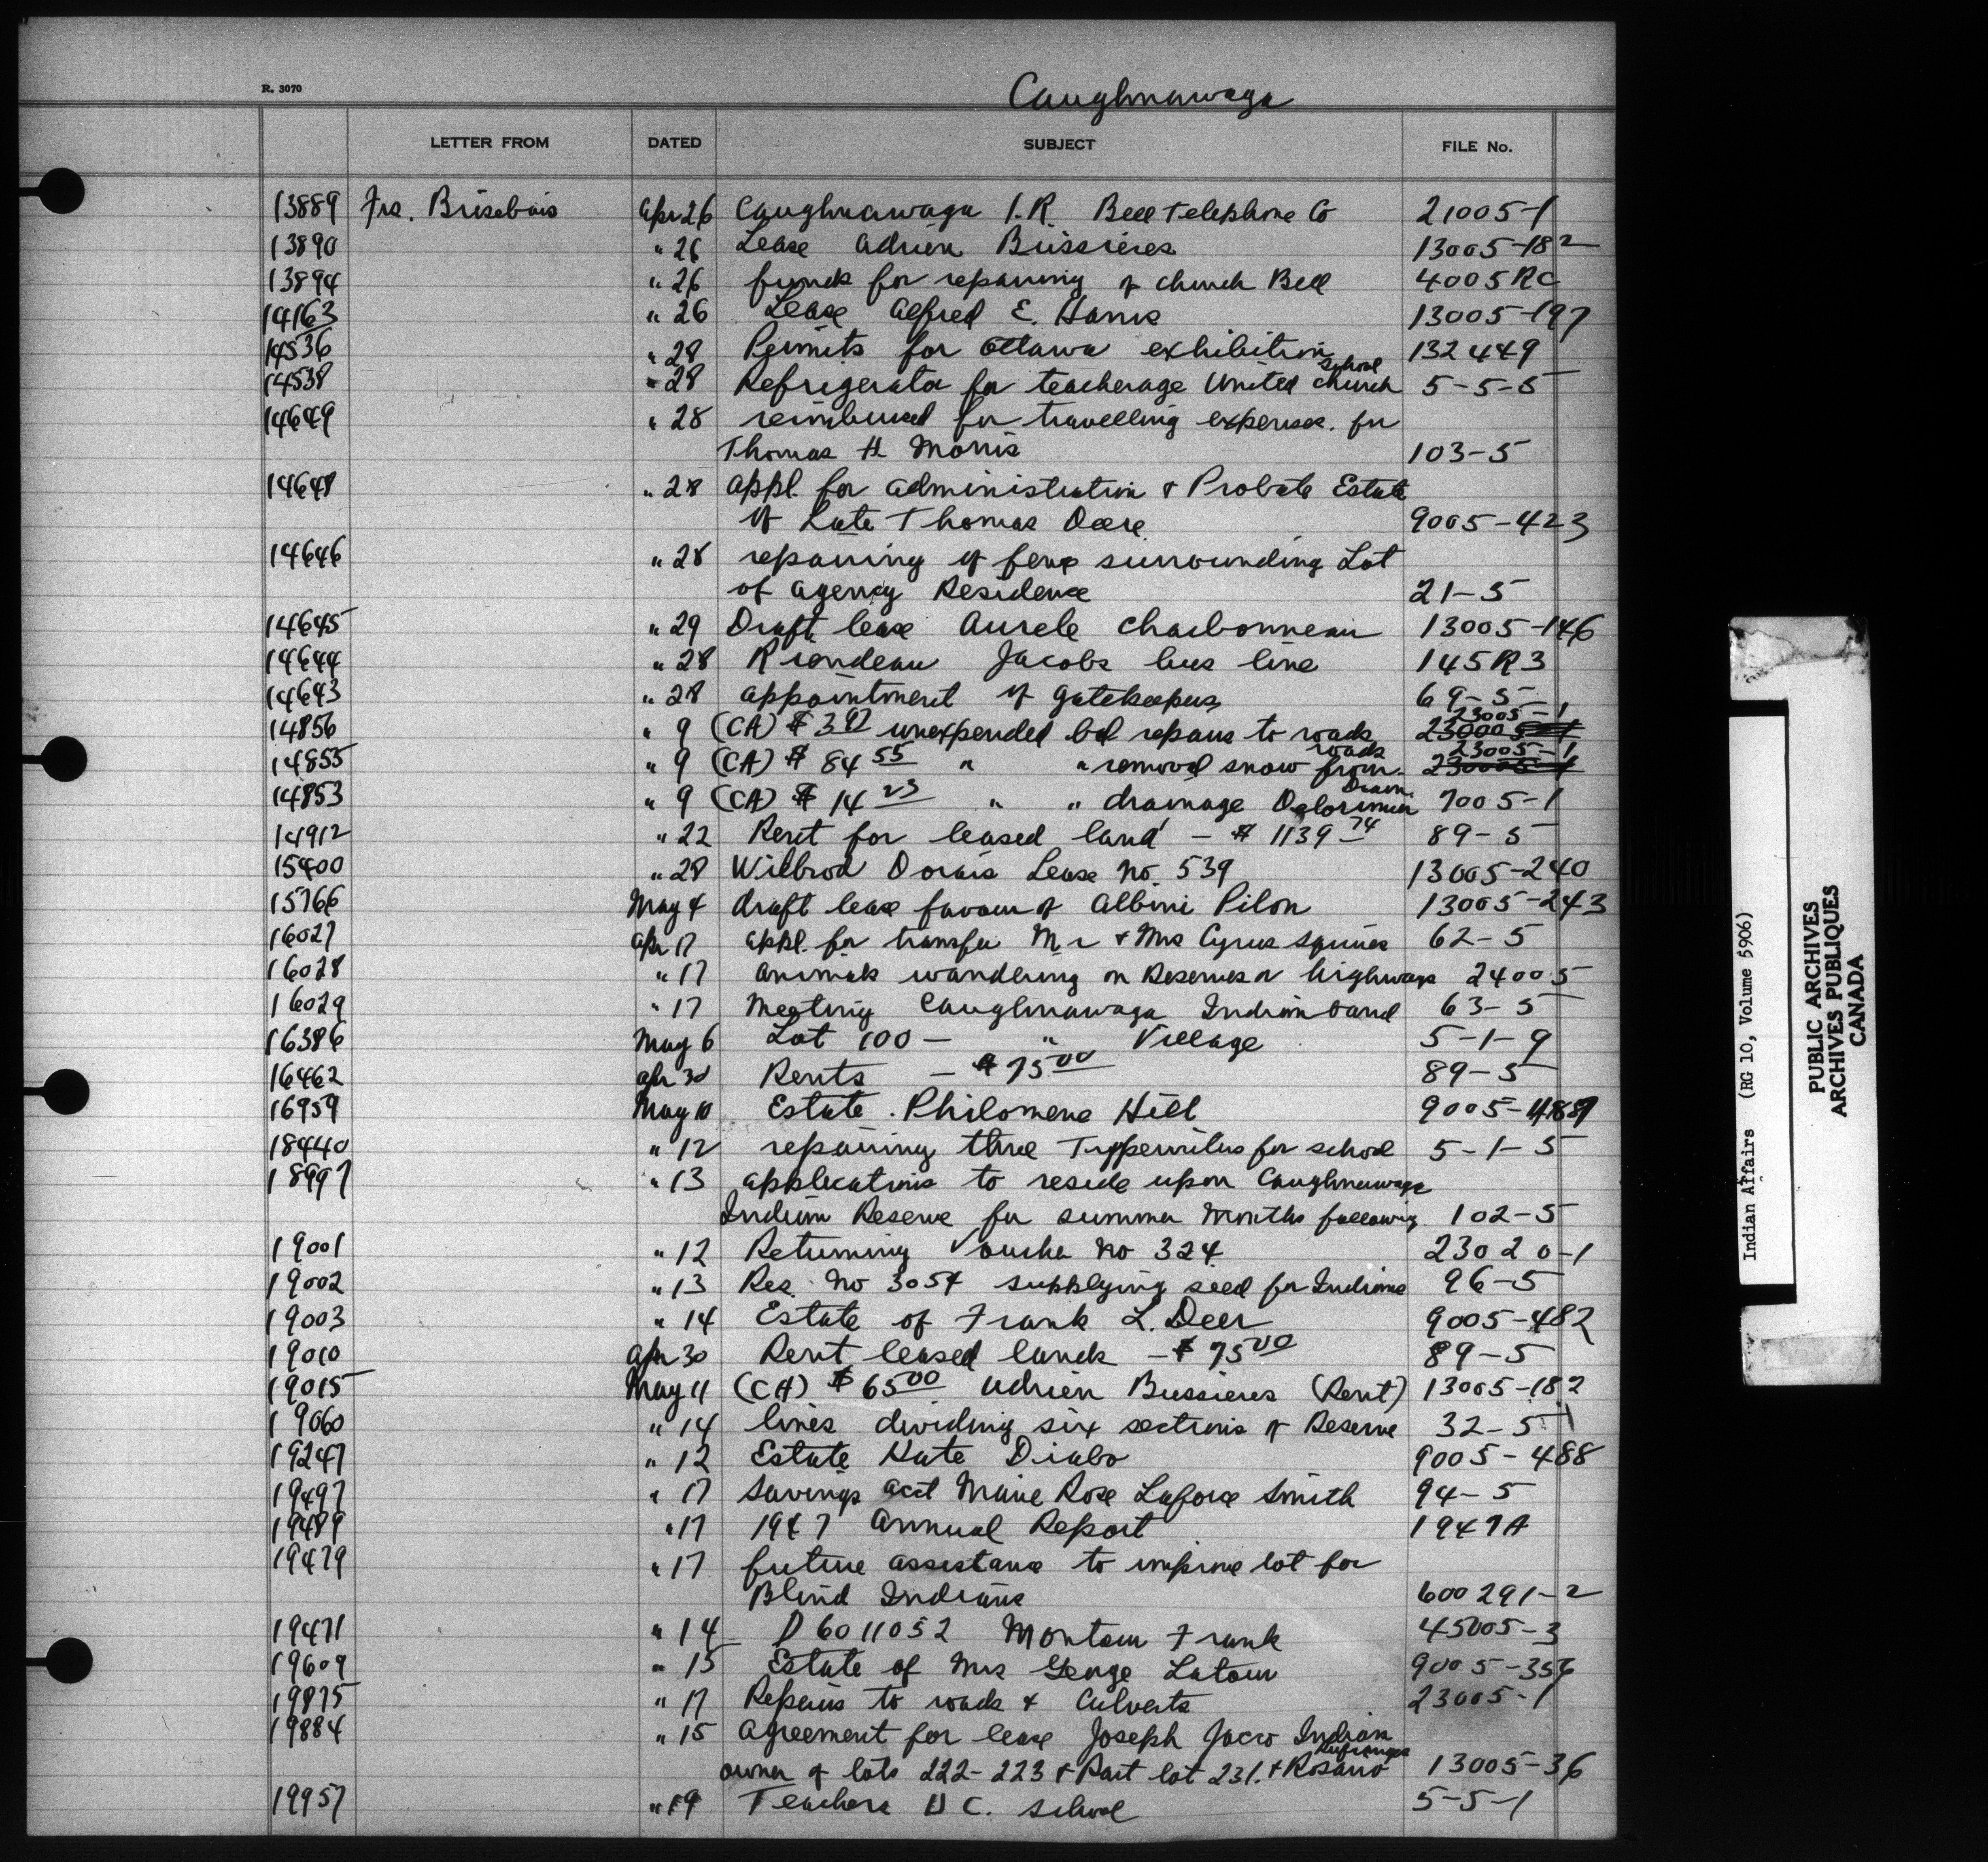 R. 3070
Caughnawaga
LETTER FROM DATED SUBJECT FILE No.
13889 Frs. Brisebois Apr 26 Caughnawaga I.R. Bell Telephone Co 21005-1
13890 " 26 Lease Adrien Bussieres 13005-182
13894 " 26 funds for repairing of church Bell 4005 RC
14163 " 26 Lease Alfred E. Hanis 13005-197
14536 " 28 Permits for Ottawa exhibition 132449
14538 " 28 Refrigerator for teacherage United Church School 5-5-5
14649 " 28 reimbursed for travelling expenses. for
Thomas H Morris 103-5
14648 " 28 appl. for administration & Probate Estate
of Late Thomas Deere 9005-423
14646 " 28 repairing of fence surrounding Lot
of Agency Residence 21-5
14645 " 29 Draft lease Aurele Charbonneau 13005-146
14644 " 28 Riendeau Jacobs bus line 145R3
14643 " 28 appointment of gatekeepers 69-5
14856 " 9 (CA) $ 3.97 unexpended bal repairs to roads 23005-1
14855 " 9 (CA) $ 84 55 " " removal snow from roads 23005-1
14853 " 9 (CA) $ 14 23 " " drainage Delorimier Drain 7005-1
14912 " 22 Rent for leased land - $ 1139 74 89-5
15400 " 28 Wilbrod Dorais Lease No. 539 13005-240
15766 May 4 draft lease favour of Albini Pilon 13005-243
16027 Apr 17 appl. for transfer Mr & Mrs Cyrus Squires 62-5
16028 " 17 Animals wandering on Reserves or highways 24005
16029 " 17 Meeting Caughnawaga Indian band 63-5
16386 May 6 Lot 100 - " Village 5-1-9
16462 Apr 30 Rents - $ 75 00 89-5
16959 May 10 Estate. Philomene Hill 9005-489
18440 " 12 repairing three Typewriters for school 5-1-5
18997 " 13 applications to reside upon Caughnawaga
Indian Reserve for summer months following 102-5
19001 " 12 Returning Voucher No 324 23020-1
19002 " 13 Res. No 3054 supplying seed for Indians 96-5
19003 " 14 Estate of Frank L. Deer 9005-482
19010 Apr 30 Rent leased lands - $ 75 00 89-5
19015 May 11 (CA) $ 65 00 Adrien Bussieres (Rent) 13005-182
19060 " 14 lines dividing six sections of Reserve 32-5-1
19247 " 12 Estate Kate Diabo 9005-488
19497 " 17 Savings acct Marie Rose Laforce Smith 94-5
19489 " 17 1947 Annual Report 1947A
19479 " 17 future assistance to improve lot for
Blind Indians 600291-2
19471 " 14 D6011052 Montour Frank 45005-3
19609 " 15 Estate of Mrs George Latour 9005-356
19875 " 17 Repairs to roads & Culverts 23005-1
19884 " 15 Agreement for lease Joseph Jacco Indian
owner of lots 222-223 & Part lot 231. & Rosario 13005-36
19957 " 19 Teachers U C. school 5-5-1
Indian Affairs (RG 10, Volume 5906)
PUBLIC ARCHIVES
ARCHIVES PUBLIQUES
CANADA